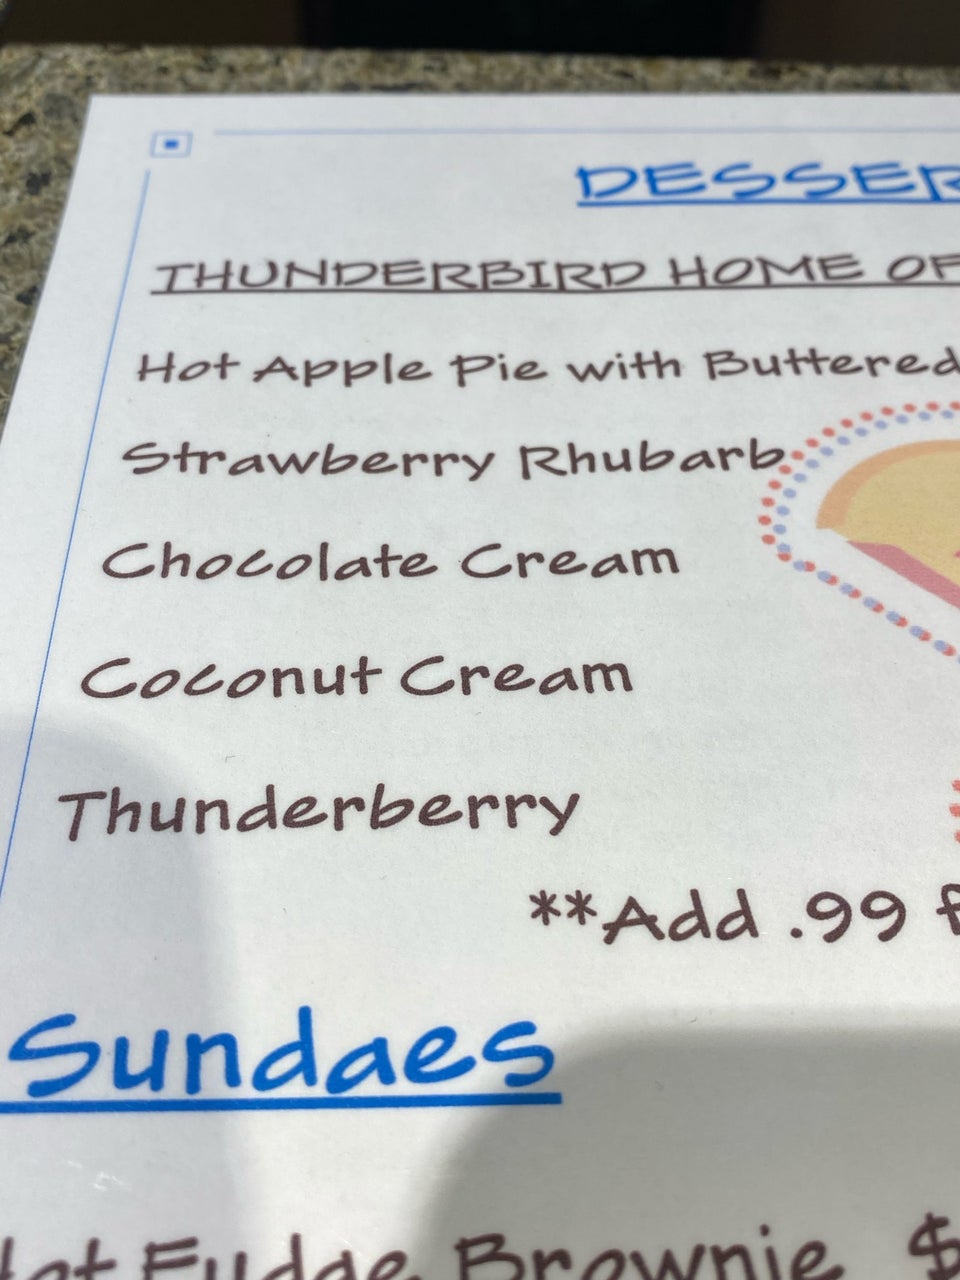 DESSER
THUNDERBIRD HOME OF
Hot Apple Pie with Buttered
Strawberry Rhubarb
Chocolate Cream
Coconut Cream
Thunderberry
**Add .99 f
Sundaes
Hot Fudge Brownie $